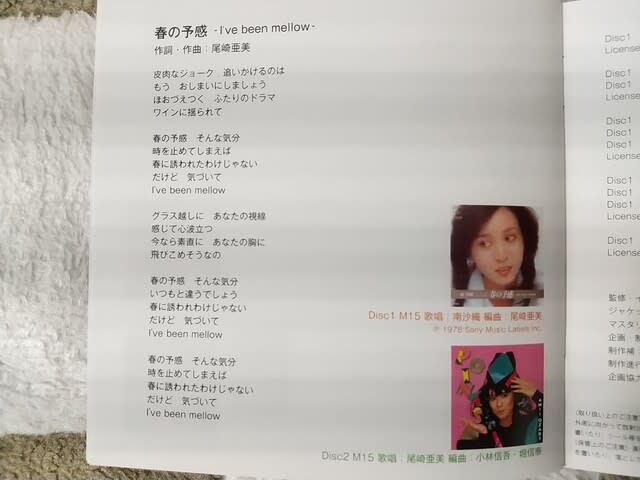 春の予感 -I've been mellow-
作詞・作曲：尾崎亜美
皮肉なジョーク　追いかけるのは
もう　おしまいにしましょう
ほおづえつく　ふたりのドラマ
ワインに揺られて
春の予感　そんな気分
時を止めてしまえば
春に誘われたわけじゃない
だけど　気づいて
I've been mellow
グラス越しに　あなたの視線
感じて心波立つ
今なら素直に　あなたの胸に
飛びこめそうなの
春の予感　そんな気分
いつもと違うでしょう
春に誘われたわけじゃない
だけど　気づいて
I've been mellow
春の予感　そんな気分
時を止めてしまえば
春に誘われたわけじゃない
だけど　気づいて
I've been mellow
春の予感
Disc1 M15 歌唱：南沙織 編曲：尾崎亜美
℗ 1978 Sony Music Labels Inc.
AMII OZAKI
Disc2 M15 歌唱：尾崎亜美 編曲：小林信吾・堀信泰
Disc1
License
Disc1
Disc1
License
Disc1
Disc1
Disc1
License
Disc1
Disc1
Disc1
License
Disc1
License
監修・
ジャケッ
マスタ
企画・制
制作補
制作進行
企画協力
〈取り扱い上のご注意〉
外周に向かって放射
書いたり、シール等を
〈保管上のご注意〉直
を置いたり、落とした